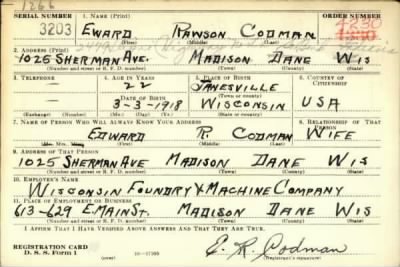 1266
SERIAL NUMBER 1. NAME (Print) ORDER NUMBER
3203 EWARD RAWSON CODMAN 4230
(First) (Middle) (Last)
2. ADDRESS (Print)
1025 SHERMAN AVE. MADISON DANE WIS
(Number and street or R. F. D. number) (Town) (County) (State)
3. TELEPHONE 4. AGE IN YEARS 5. PLACE OF BIRTH 6. COUNTRY OF CITIZENSHIP
— 22 JANESVILLE
DATE OF BIRTH (Town or county)
— 3-3-1918 WISCONSIN USA
(Exchange) (Number) (Mo.) (Day) (Yr.) (State or country)
7. NAME OF PERSON WHO WILL ALWAYS KNOW YOUR ADDRESS 8. RELATIONSHIP OF THAT PERSON
EDWARD R. CODMAN WIFE
Mrs. (First) (Middle) (Last)
9. ADDRESS OF THAT PERSON
1025 SHERMAN AVE MADISON DANE WIS
(Number and street or R. F. D. number) (Town) (County) (State)
10. EMPLOYER'S NAME
WISCONSIN FOUNDRY & MACHINE COMPANY
11. PLACE OF EMPLOYMENT OR BUSINESS
613-629 E. MAIN ST. MADISON DANE WIS
(Number and street or R. F. D. number) (Town) (County) (State)
I AFFIRM THAT I HAVE VERIFIED ABOVE ANSWERS AND THAT THEY ARE TRUE.
REGISTRATION CARD
D. S. S. Form 1 (over) E. R. Codman
(Registrant's signature)